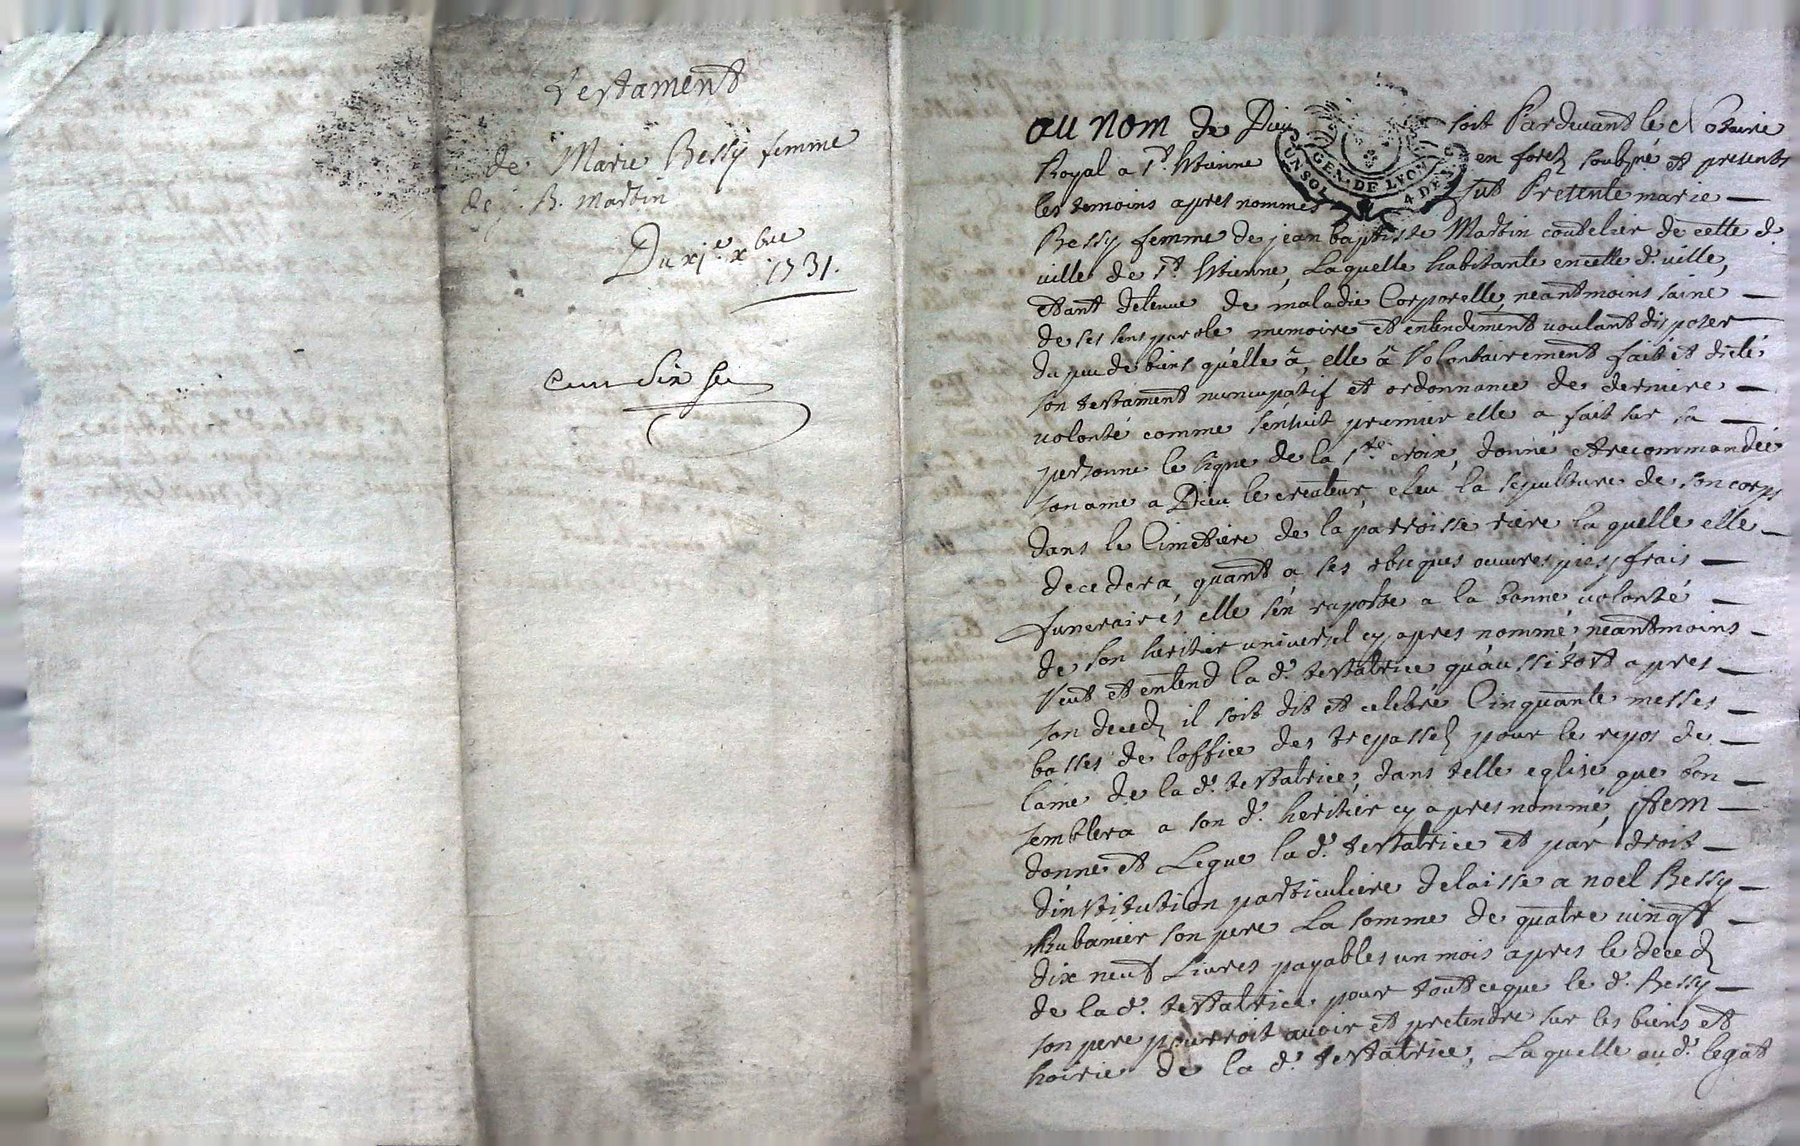 Testament
de Marie Bessy femme
de j. B. Martin
Du xj.e xbre
1731.
au nom de Dieu soit Pardevant le Notaire
Royal a St. Estienne en forez soubsné et presents
les temoins apres nommes fut Presente marie
Bessy femme de jean baptiste Martin coutelier de cette d.
ville de St. Estienne, Laquelle habitante en cette d. ville,
etant detenue de maladie Corporelle, neantmoins saine
de ses sens parole memoire et entendement voulant disposer
du peu de biens qu'elle â, elle â Volontairement fait et dicté
son testament nuncupatif et ordonnance de derniere
volonté comme s'ensuit premier elle a fait sur sa
personne le signe de la Ste. croix, donné et recommandée
son ame a Dieu le createur, eleu la sepulture de son corps
dans le Cimetiere de la parroisse riere la quelle elle
decedera, quant a ses obseques oeuvres pies frais
funeraires elle s'en raporte a la bonne volonté
de son heritier universel cy apres nommé, neantmoins
Veut et entend la d. testatrice qu'aussitost apres
son decedz il soit dit et celebré Cinquante messes
basses de l'office des trepassez pour le repos de
l'ame de la d. testatrice, dans telle eglise que bon
semblera a son d. heritier cy apres nommé, jtem
donne et Legue la d. testatrice et par droit
d'institution particuliere delaisse a noel Bessy
Rubanier son pere La somme de quatre vingt
dix neuf Livres payables un mois apres le decedz
de la d. testatrice pour tout ce que le d. Bessy
son pere pourroit avoir et pretendre sur les biens et
hoirie de la d. testatrice, Laquelle au d. legat
GEN. DE LYON
UN SOL 4 DE